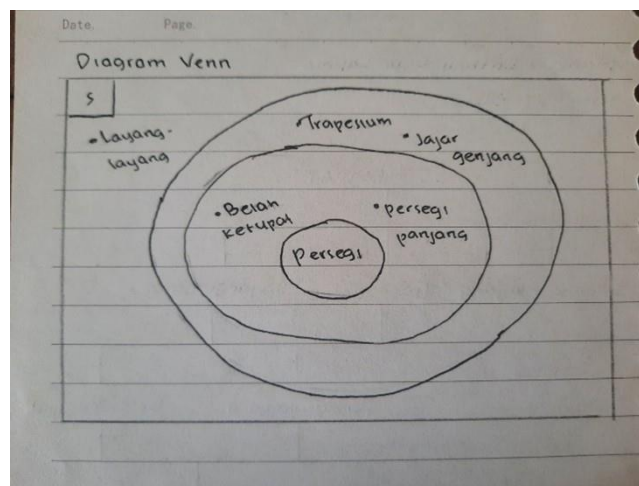 Date.
Page.
Diagram Venn
S
• Layang-
layang
• Trapesium
• Jajar
genjang
• Belah
ketupat
• persegi
panjang
persegi